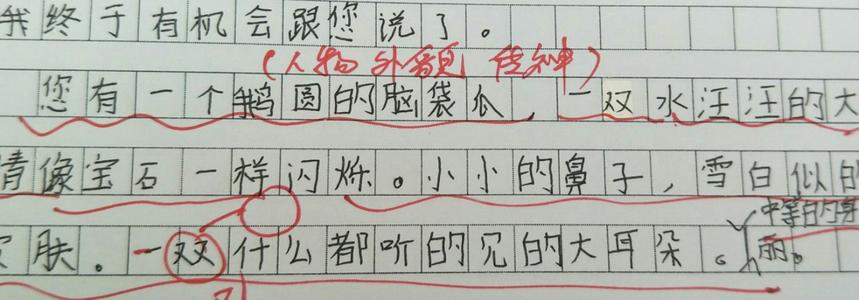 我终于有机会跟您说了。
(人物外貌 传神)
您有一个鹅圆的脑袋瓜，一双水汪汪的大
睛像宝石一样闪烁。小小的鼻子，雪白似的
中等的身
皮肤。一双什么都听的见的大耳朵。丽。